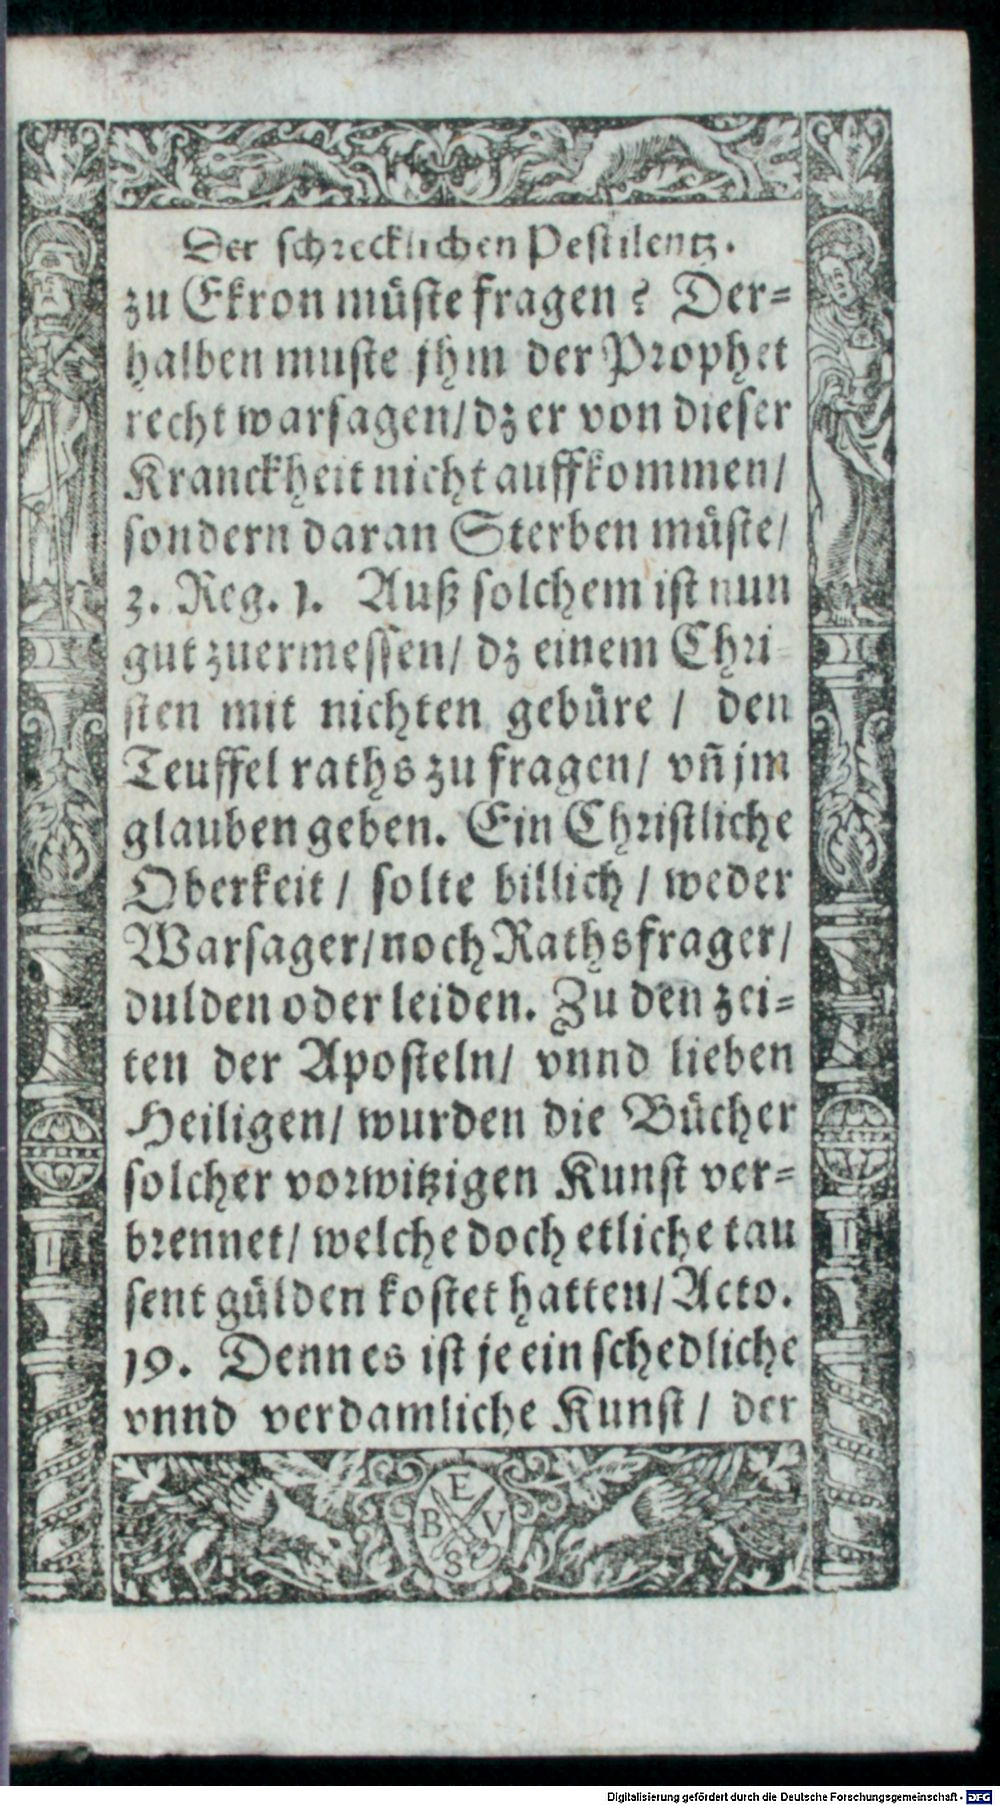 Der schrecklichen Pestilentz.
zu Ekron müste fragen? Der=
halben muste jhm der Prophet
recht warsagen/ dz er von dieser
Kranckheit nicht auffkommen/
sondern daran Sterben müste/
3. Reg. 1. Auß solchem ist nun
gut zuermessen/ dz einem Chri-
sten mit nichten gebüre / den
Teuffel raths zu fragen/ vñ jm
glauben geben. Ein Christliche
Oberkeit / solte billich / weder
Warsager/ noch Rathsfrager/
dulden oder leiden. Zu den zei=
ten der Aposteln/ vnnd lieben
Heiligen/ wurden die Bücher
solcher vorwitzigen Kunst ver=
brennet/ welche doch etliche tau
sent gülden kostet hatten/ Acto.
19. Denn es ist je ein schedliche
vnnd verdamliche Kunst / der
E
B V
S
Digitalisierung gefördert durch die Deutsche Forschungsgemeinschaft - DFG